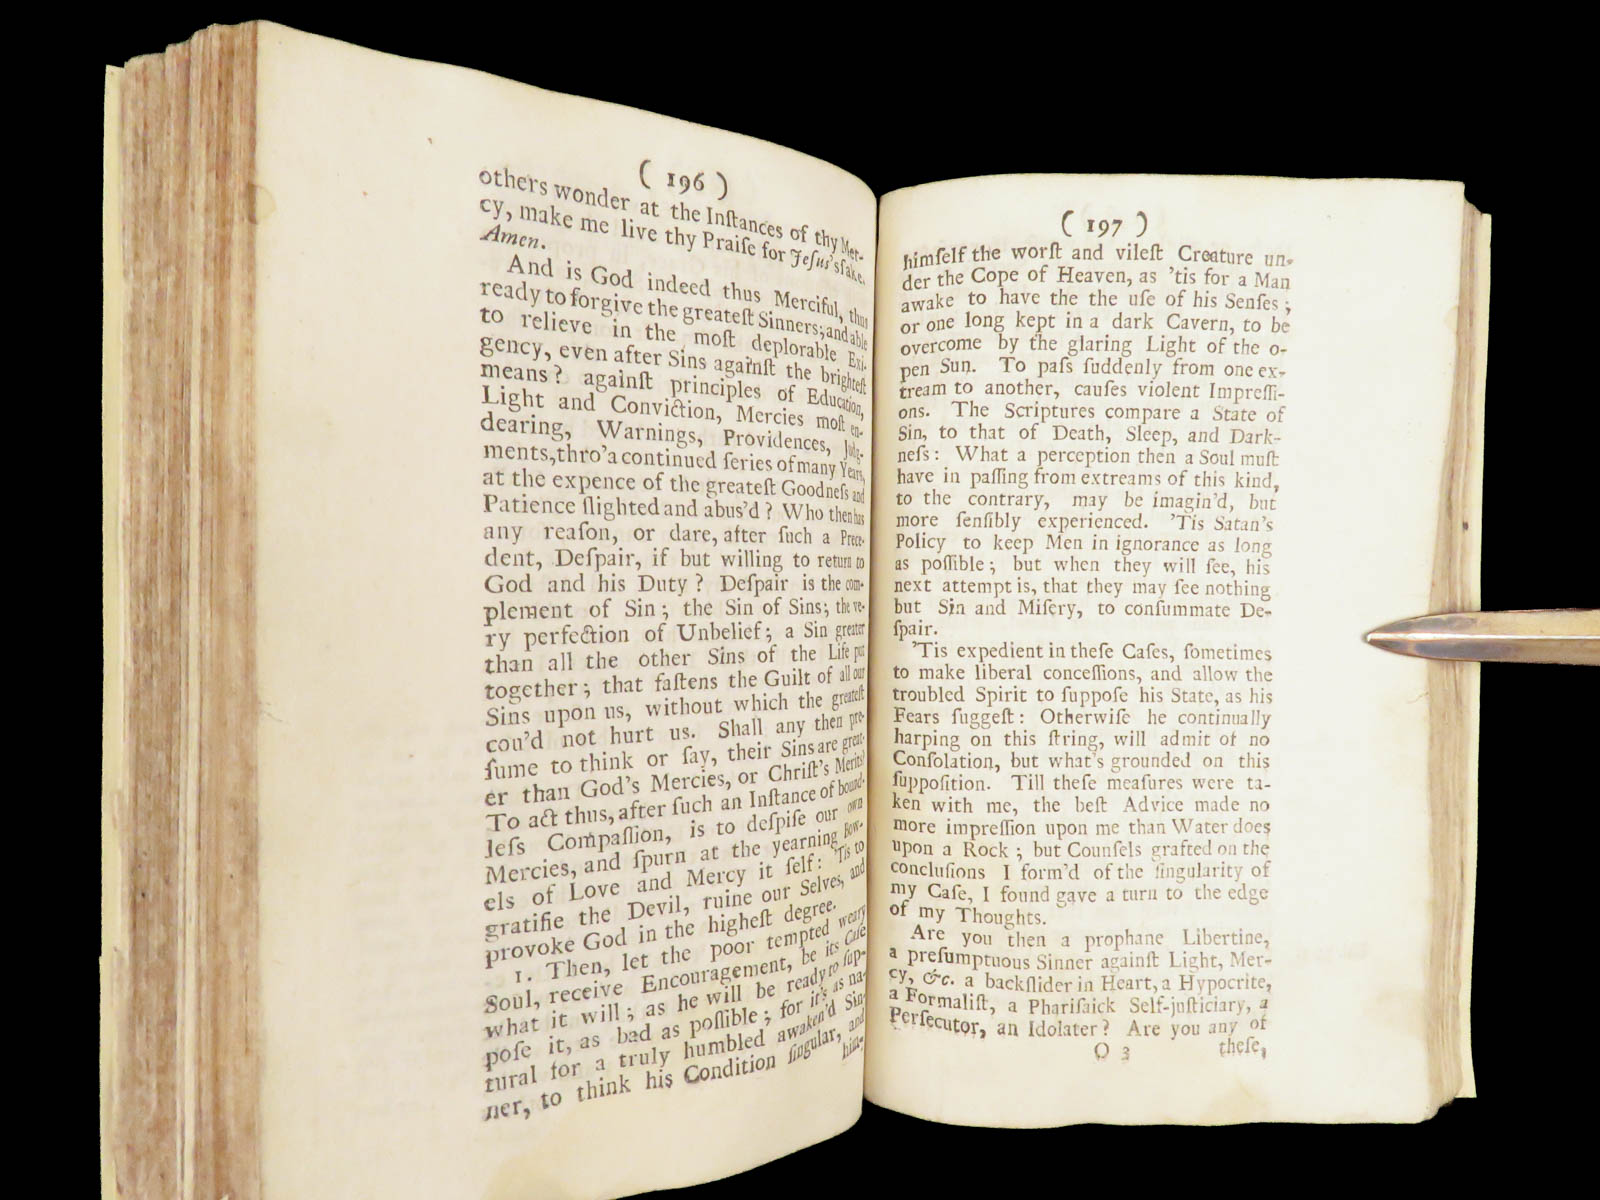 ( 196 )
others wonder at the Inſtances of thy Mer-
cy, make me live thy Praiſe for Jeſus's ſake.
Amen.
And is God indeed thus Merciful, thus
ready to forgive the greateſt Sinners; and able
to relieve in the moſt deplorable Exi-
gency, even after Sins againſt the brighteſt
means? againſt principles of Education,
Light and Conviction, Mercies moſt en-
dearing, Warnings, Providences, Judg-
ments, thro' a continued ſeries of many Years,
at the expence of the greateſt Goodneſs and
Patience ſlighted and abus'd? Who then has
any reaſon, or dare, after ſuch a Prece-
dent, Deſpair, if but willing to return to
God and his Duty? Deſpair is the com-
plement of Sin; the Sin of Sins; the ve-
ry perfection of Unbelief; a Sin greater
than all the other Sins of the Life put
together; that faſtens the Guilt of all our
Sins upon us, without which the greateſt
cou'd not hurt us. Shall any then pre-
ſume to think or ſay, their Sins are great-
er than God's Mercies, or Chriſt's Merits?
To act thus, after ſuch an Inſtance of bound-
leſs Compaſſion, is to deſpiſe our own
Mercies, and ſpurn at the yearning Bow-
els of Love and Mercy it ſelf: 'Tis to
gratifie the Devil, ruine our Selves, and
provoke God in the higheſt degree.
1. Then, let the poor tempted weary
Soul, receive Encouragement, be its Caſe
what it will; as he will be ready to ſup-
poſe it, as bad as poſſible; for it's as na-
tural for a truly humbled awaken'd Sin-
ner, to think his Condition ſingular, and
him-
( 197 )
himſelf the worſt and vileſt Creature un-
der the Cope of Heaven, as 'tis for a Man
awake to have the the uſe of his Senſes;
or one long kept in a dark Cavern, to be
overcome by the glaring Light of the o-
pen Sun. To paſs ſuddenly from one ex-
tream to another, cauſes violent Impreſſi-
ons. The Scriptures compare a State of
Sin, to that of Death, Sleep, and Dark-
neſs: What a perception then a Soul muſt
have in paſſing from extreams of this kind,
to the contrary, may be imagin'd, but
more ſenſibly experienced. 'Tis Satan's
Policy to keep Men in ignorance as long
as poſſible; but when they will ſee, his
next attempt is, that they may ſee nothing
but Sin and Miſery, to conſummate De-
ſpair.
'Tis expedient in theſe Caſes, ſometimes
to make liberal conceſſions, and allow the
troubled Spirit to ſuppoſe his State, as his
Fears ſuggeſt: Otherwiſe he continually
harping on this ſtring, will admit of no
Conſolation, but what's grounded on this
ſuppoſition. Till theſe meaſures were ta-
ken with me, the beſt Advice made no
more impreſſion upon me than Water does
upon a Rock; but Counſels grafted on the
concluſions I form'd of the ſingularity of
my Caſe, I found gave a turn to the edge
of my Thoughts.
Are you then a prophane Libertine,
a preſumptuous Sinner againſt Light, Mer-
cy, &c. a backſlider in Heart, a Hypocrite,
a Formaliſt, a Phariſaick Self-juſticiary, a
Perſecutor, an Idolater? Are you any of
O 3 theſe,